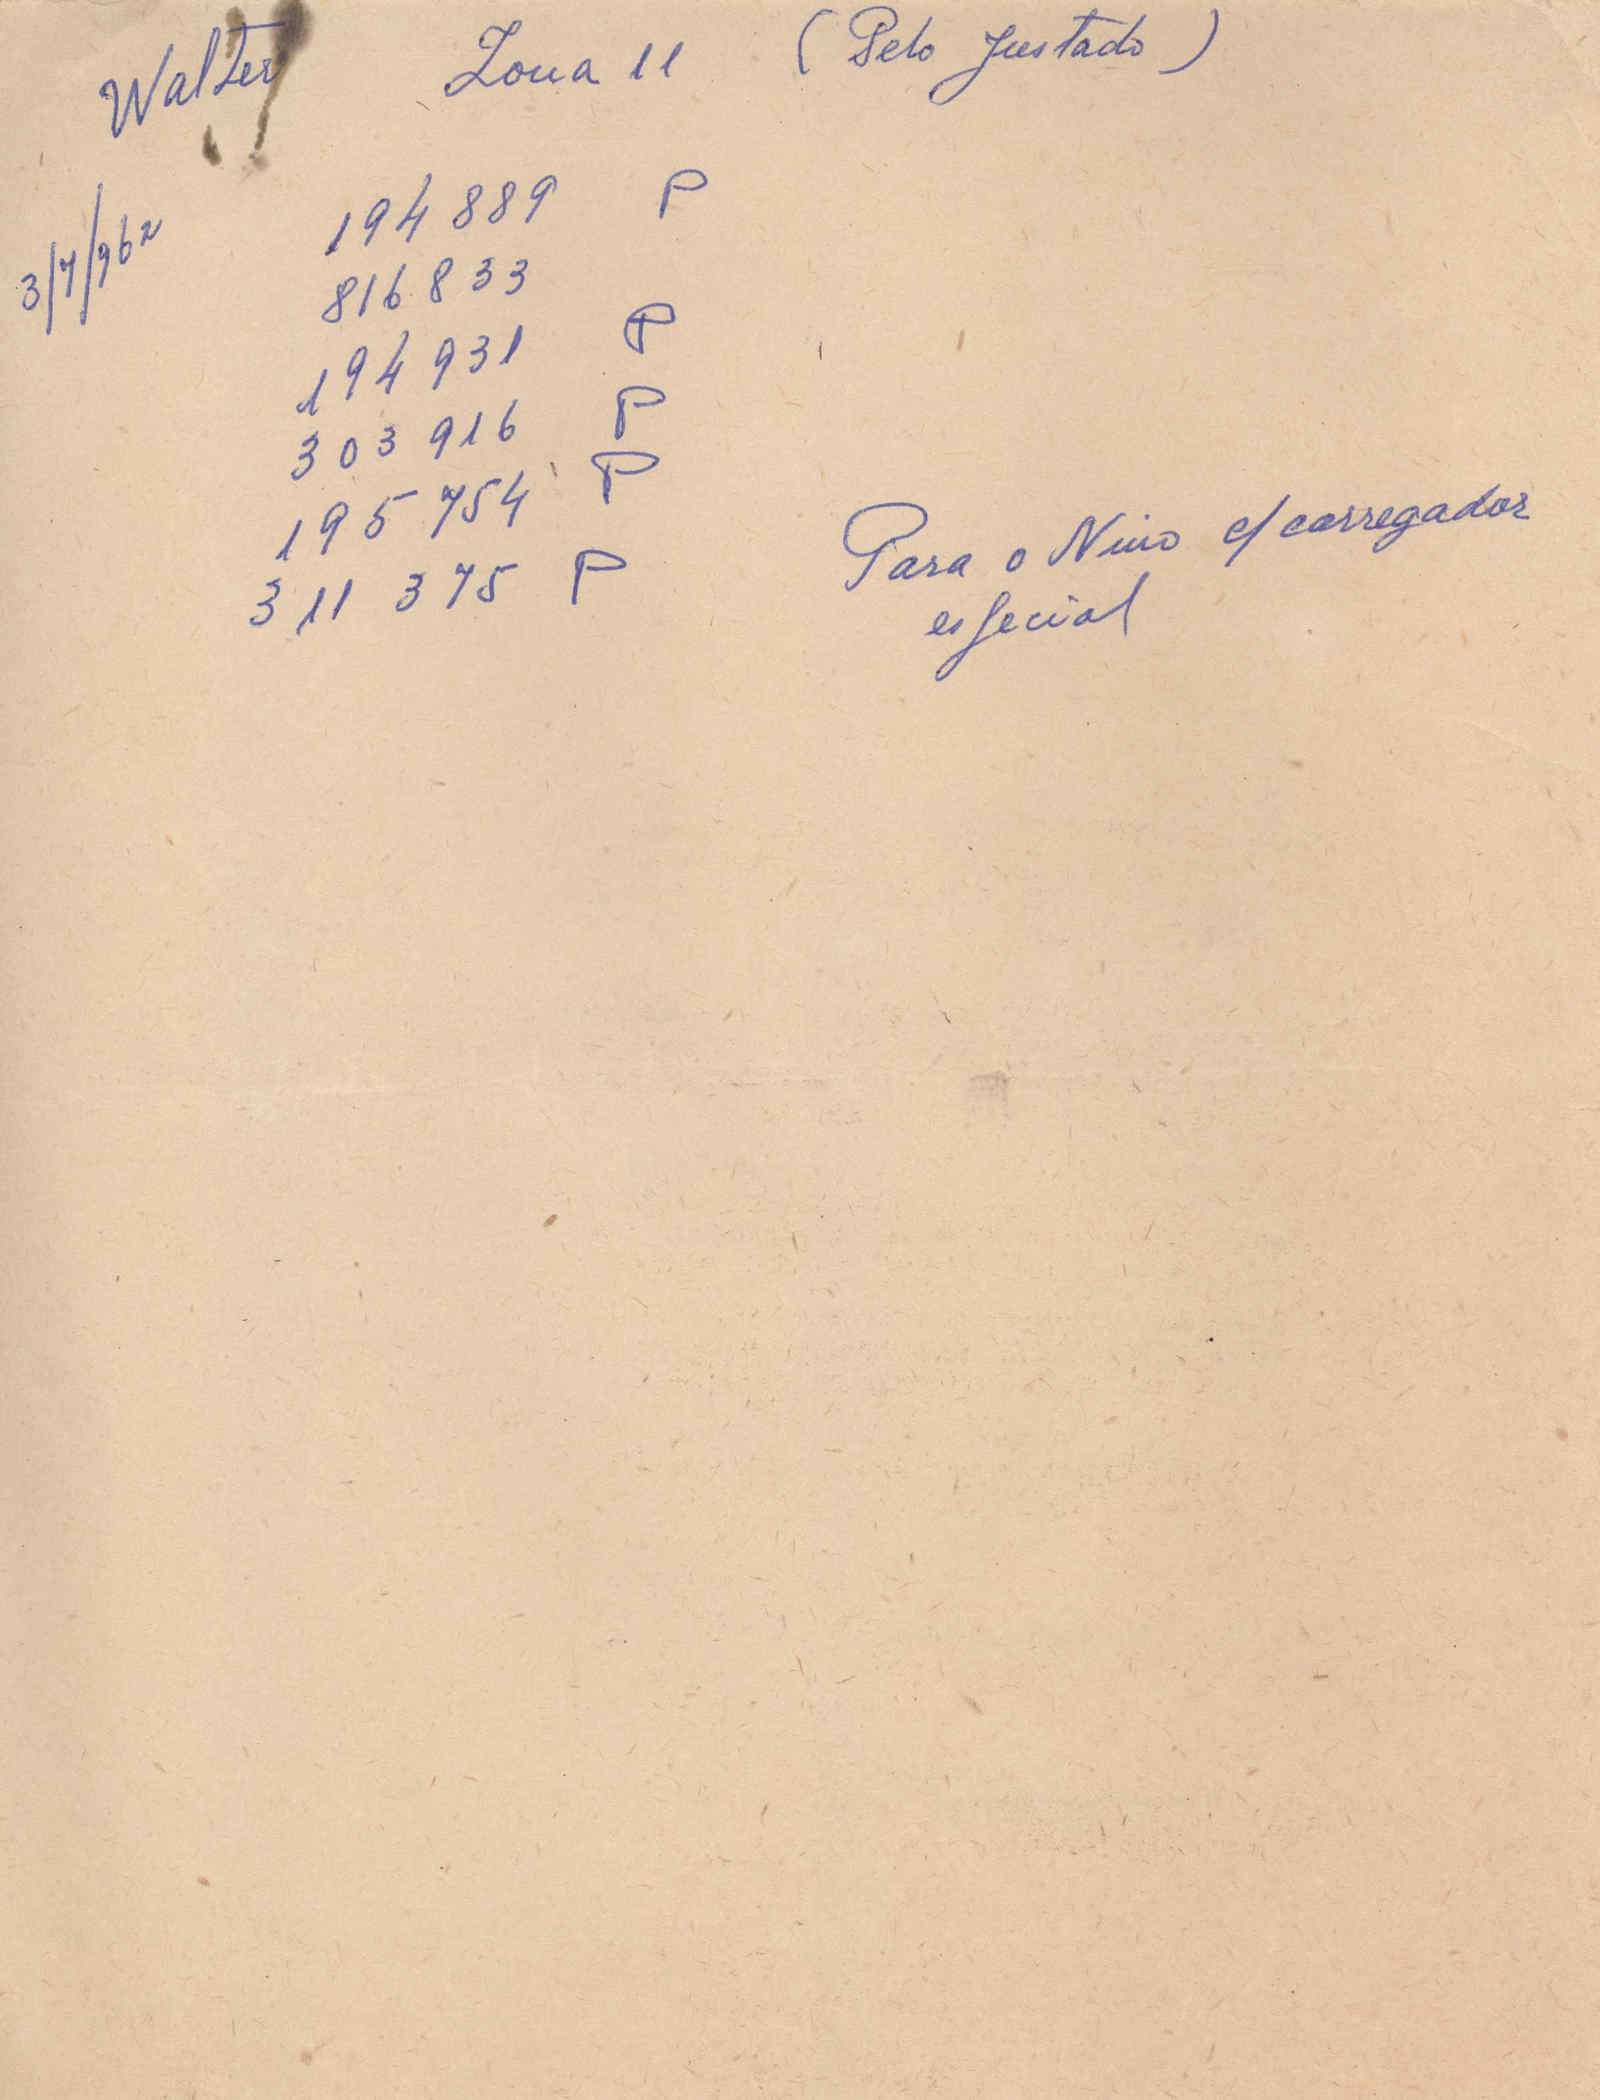 Walter Zona 11 (Pelo Justado)
3/7/962
194 889 P
816 833
194 931 P
303 916 P
195 754 P
311 375 P
Para o Nino c/ carregador
especial